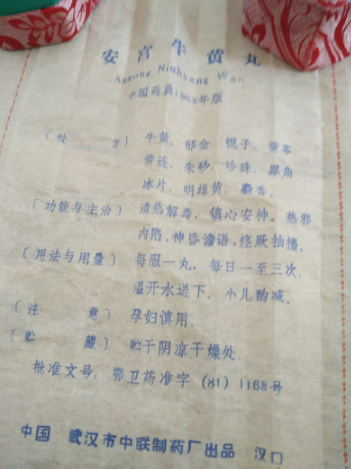 安宫牛黄丸
Angong Niuhuang Wan
中国药典1963年版
〔处方〕牛黄、郁金、栀子、黄芩
黄连、朱砂、珍珠、犀角
冰片、明雄黄、麝香。
〔功能与主治〕清热解毒，镇心安神。热邪
内陷，神昏谵语，痉厥抽搐。
〔用法与用量〕每服一丸，每日一至三次，
温开水送下，小儿酌减。
〔注意〕孕妇慎用。
〔贮藏〕贮干阴凉干燥处
批准文号：鄂卫药准字(81)1168号
中国 武汉市中联制药厂出品 汉口